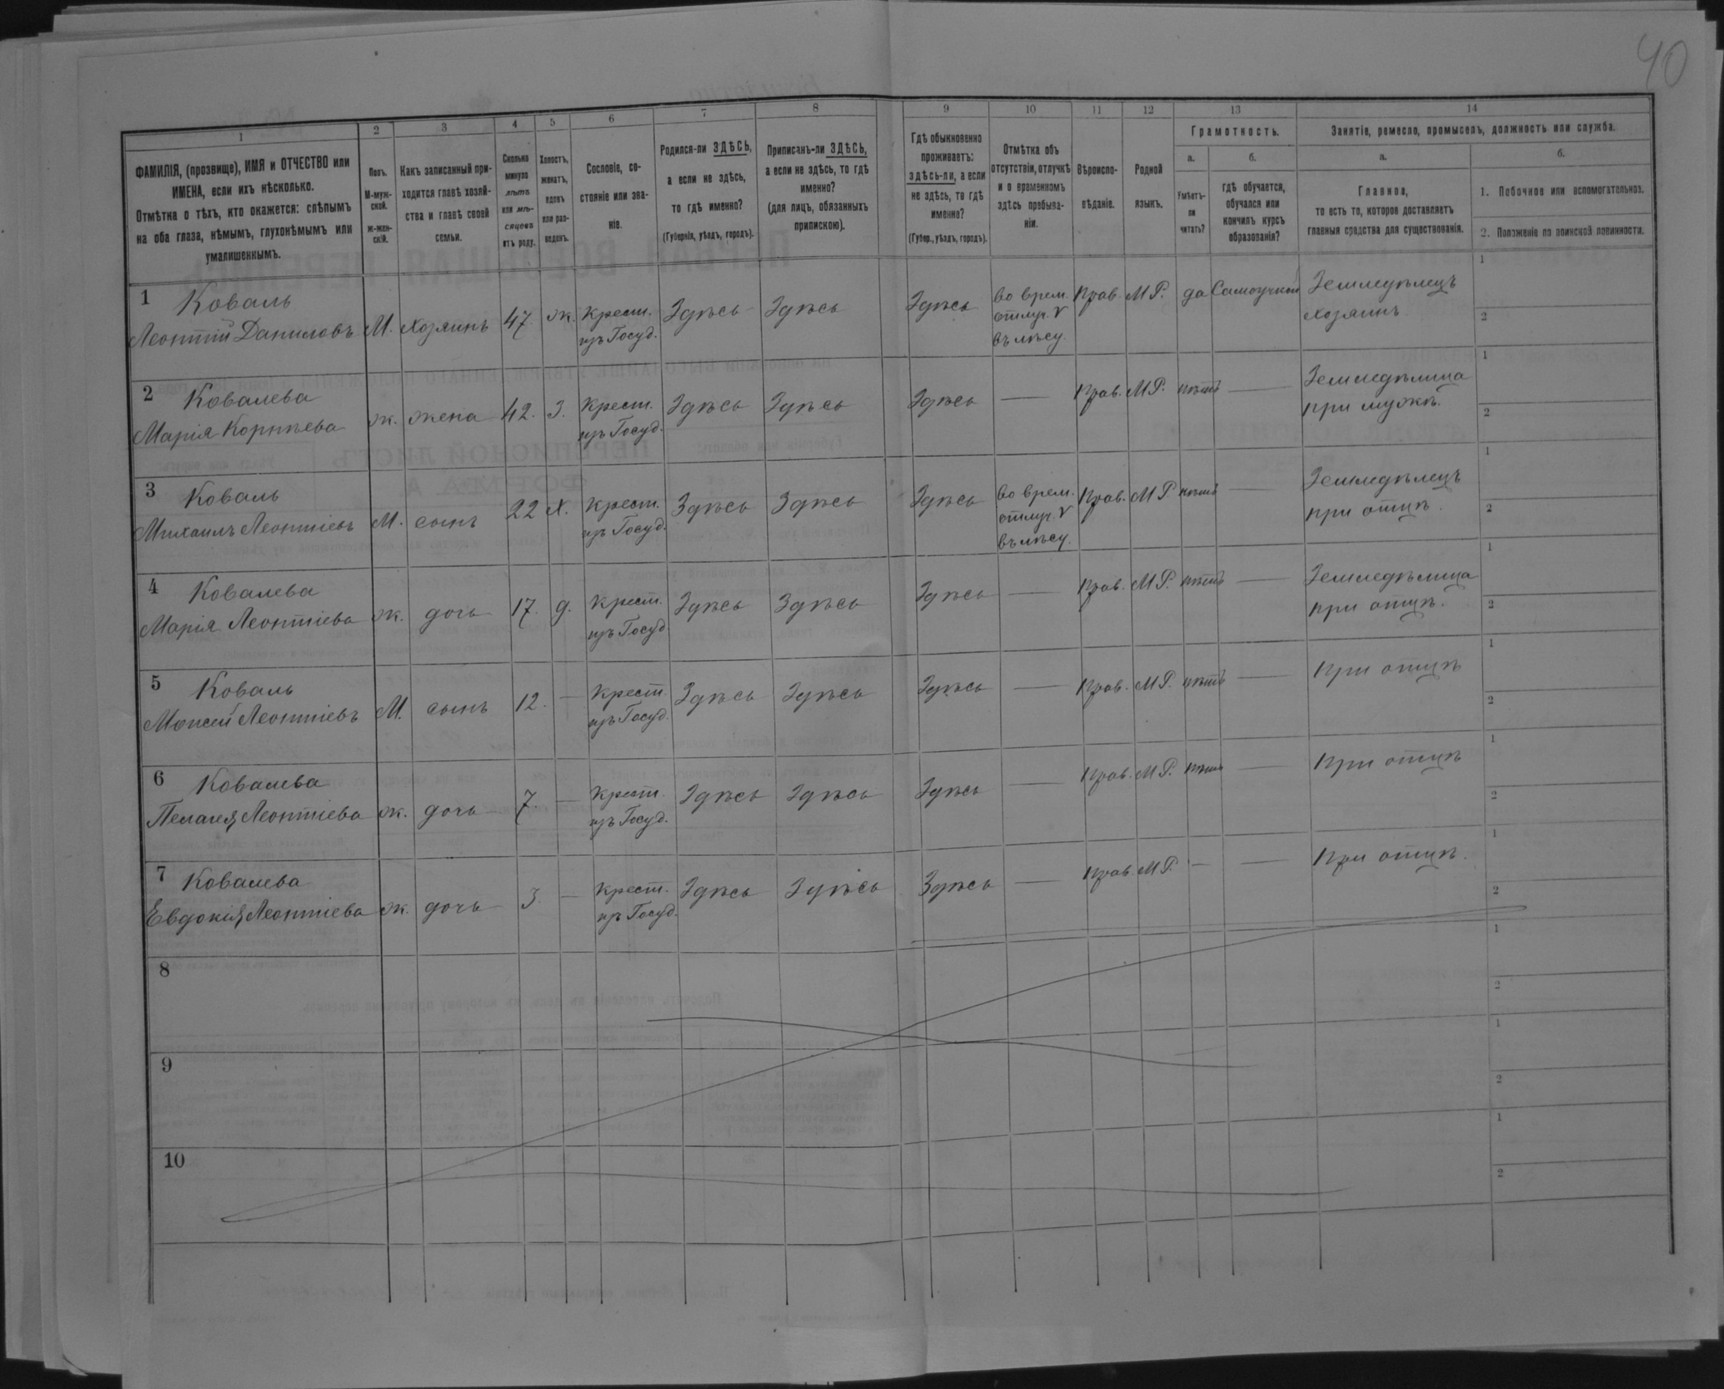 40
1 2 3 4 5 6 7 8 9 10 11 12 13 14
ФАМИЛІЯ, (прозвище), ИМЯ и ОТЧЕСТВО или
ИМЕНА, если ихъ нѣсколько.
Отмѣтка о тѣхъ, кто окажется: слѣпымъ
на оба глаза, нѣмымъ, глухонѣмымъ или
умалишеннымъ.
Полъ.
М-муж-
ской.
ж-жен-
скій.
Какъ записанный при-
ходится главѣ хозяй-
ства и главѣ своей
семьи.
Сколько
минуло
лѣтъ
или мѣ-
сяцевъ
отъ роду.
Холостъ,
женатъ,
вдовъ
или раз-
веденъ.
Сословіе, со-
стояніе или зва-
ніе.
Родился-ли ЗДѢСЬ,
а если не здѣсь,
то гдѣ именно?
(Губернія, уѣздъ, городъ).
Приписанъ-ли ЗДѢСЬ,
а если не здѣсь, то гдѣ
именно?
(для лицъ, обязанныхъ
припискою).
Гдѣ обыкновенно
проживаетъ:
здѣсь-ли, а если
не здѣсь, то гдѣ
именно?
(Губер., уѣздъ, городъ).
Отмѣтка объ
отсутствіи, отлучкѣ
и о временномъ
здѣсь пребыва-
ніи.
Вѣроиспо-
вѣданіе.
Родной
языкъ.
Грамотность.
а.
б.
Умѣетъ-
ли
читать?
гдѣ обучается,
обучался или
кончилъ курсъ
образованія?
Занятіе, ремесло, промыселъ, должность или служба.
а.
б.
Главное,
то есть то, которое доставляетъ
главныя средства для существованія.
1. Побочное или вспомогательное.
2. Положеніе по воинской повинности.
1 Коваль
Леонтій Даниловъ М. хозяинъ 47. ж. Крест. изъ Госуд. Здѣсь Здѣсь Здѣсь во врем. отлуч. въ лѣсу Прав. М.Р. да Самоучкой Земледѣлецъ хозяинъ 1 2
2 Ковалева
Марія Корнѣева ж. жена 42. З. Крест. изъ Госуд. Здѣсь Здѣсь Здѣсь — Прав. М.Р. нѣтъ — Земледѣлица при мужѣ. 1 2
3 Коваль
Михаилъ Леонтіевъ М. сынъ 22 Х. Крест. изъ Госуд. Здѣсь Здѣсь Здѣсь во врем. отлуч. въ лѣсу. Прав. М.Р. нѣтъ — Земледѣлецъ при отцѣ. 1 2
4 Ковалева
Марія Леонтіева ж. дочь 17. д. Крест. изъ Госуд. Здѣсь Здѣсь Здѣсь — Прав. М.Р. нѣтъ — Земледѣлица при отцѣ. 1 2
5 Коваль
Моисей Леонтіевъ М. сынъ 12. — Крест. изъ Госуд. Здѣсь Здѣсь Здѣсь — Прав. М.Р. нѣтъ — При отцѣ 1 2
6 Ковалева
Пелагея Леонтіева ж. дочь 7. — Крест. изъ Госуд. Здѣсь Здѣсь Здѣсь — Прав. М.Р. нѣтъ — При отцѣ 1 2
7 Ковалева
Евдокія Леонтіева ж. дочь 3. — Крест. изъ Госуд. Здѣсь Здѣсь Здѣсь — Прав. М.Р. — — При отцѣ. 1 2
8 1 2
9 1 2
10 1 2